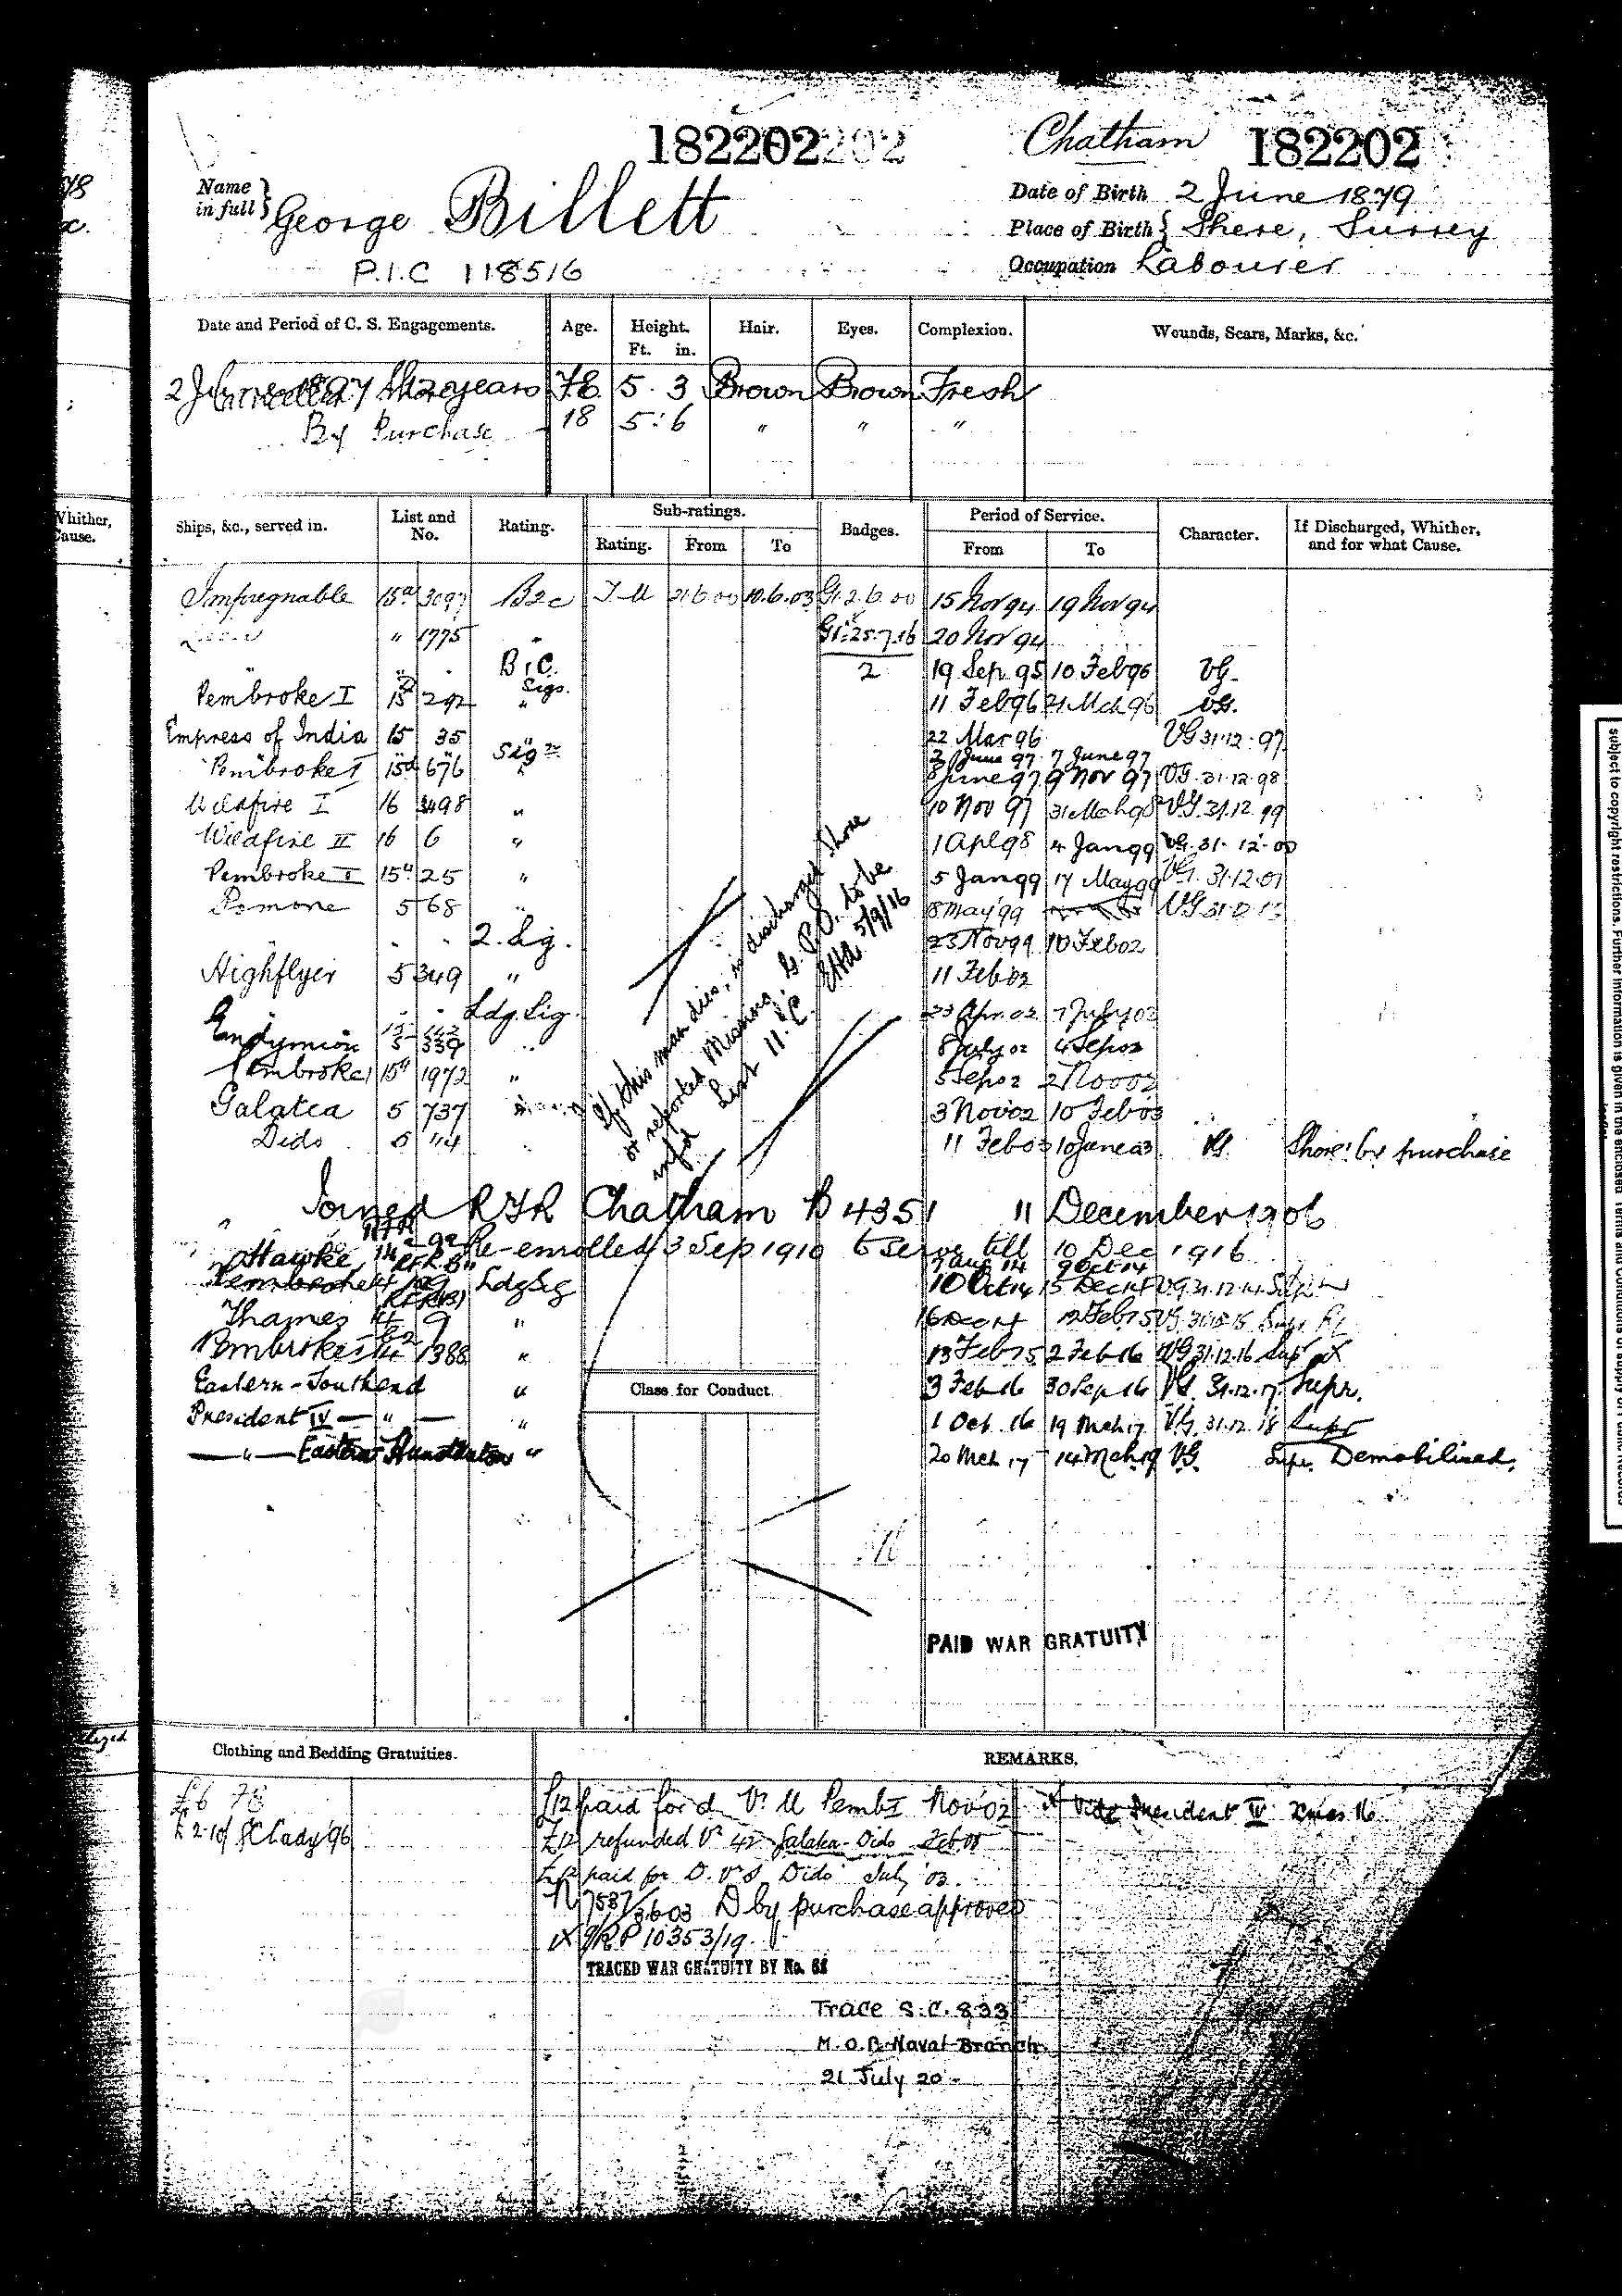 182202 202 Chatham 182202
Name in full } George Billett
Date of Birth 2 June 1879
Place of Birth } Shere, Surrey
P.I.C 118516
Occupation Labourer
Date and Period of C. S. Engagements. Age. Height. Ft. in. Hair. Eyes. Complexion. Wounds, Scars, Marks, &c.
2 June 1897 12 years 5. 3 Brown Brown Fresh
Cancelled Shore
By Purchase 18 5: 6 " " "
Whither, Cause.
Ships, &c., served in. List and No. Rating. Sub-ratings. Rating. From To Badges. Period of Service. From To Character. If Discharged, Whither, and for what Cause.
Impregnable 15a 3097 B2c 21.6.00 10.6.03 G1.2.6.00 15 Nov 94 19 Nov 94
" 1775 " G1:25.7.16 20 Nov 94
" B1C. 2 19 Sep 95 10 Feb 96 VG
Pembroke I 15 292 Sigs. " 11 Feb 96 21 Mch 96 VG.
Empress of India 15 35 " 22 Mar 96 VG 31.12.97
" " Sig 2 June 97 7 June 97
Pembroke I 15a 676 " 8 June 97 9 Nov 97 VG. 31.12.98
Wildfire I 16 498 " 10 Nov 97 31 Mch 98 VG. 31.12.99
Wildfire II 16 6 " 1 Apl 98 4 Jan 99 VG. 31.12.00
Pembroke I 15a 25 " 5 Jan 99 17 May 99 VG. 31.12.01
Pomone 5 68 " 18 May 99 VG
" " 2. Sig. 23 Nov 99 10 Feb 02
Highflyer 5 349 " 11 Feb 02
" " Ldg Sig. 23 Apr. 02 7 July 02
Endymion 5 339 " 8 July 02 4 Sep 02
Pembroke I 15a 1972 " 5 Sep 02 2 Nov 02
Galatea 5 737 " 3 Nov 02 10 Feb 03
Dido 5 114 11 Feb 03 10 June 03 VG. Shore: by purchase
If this man dies, is discharged Shore
or reported Missing, G.P.O. to be
infd List 11.C. 5/9/16
Joined RFR Chatham B 4351 11 December 1906
Re-enrolled 3 Sep 1910 to serve till 10 Dec 1916
Hawke RFR B 7 Aug 14 9 Oct 14
Pembroke Ldg Sig 10 Oct 14 15 Dec 14 VG 31.12.14 Supr
Thames 9 " 16 Dec 14 12 Feb 15 VG 31.12.15 Supr
Pembroke 1388 " 13 Feb 15 2 Feb 16 VG 31.12.16 Supr X
Eastern - Southend " 3 Feb 16 30 Sep 16 VG. 31.12.17 Supr.
President IV — " — " 1 Oct 16 19 Mch 17 VG. 31.12.18 Supr
— " — Eastern Hunstanton " 20 Mch 17 14 Mch 19 VG. Supr. Demobilised.
Class for Conduct
PAID WAR GRATUITY
Clothing and Bedding Gratuities. REMARKS.
£6 78
£2.10/
£12 paid for d Pemb I Nov 02 X Vide President IV Xmas 16
£12 refunded Vr 42 Galatea - Dido
£12 paid for D. Dido July '03.
N 7587/3.6.03 D by purchase approved
10353/19
TRACED WAR GRATUITY BY No.
Trace S.C. 833
M.O.P. Naval Branch
21 July 20